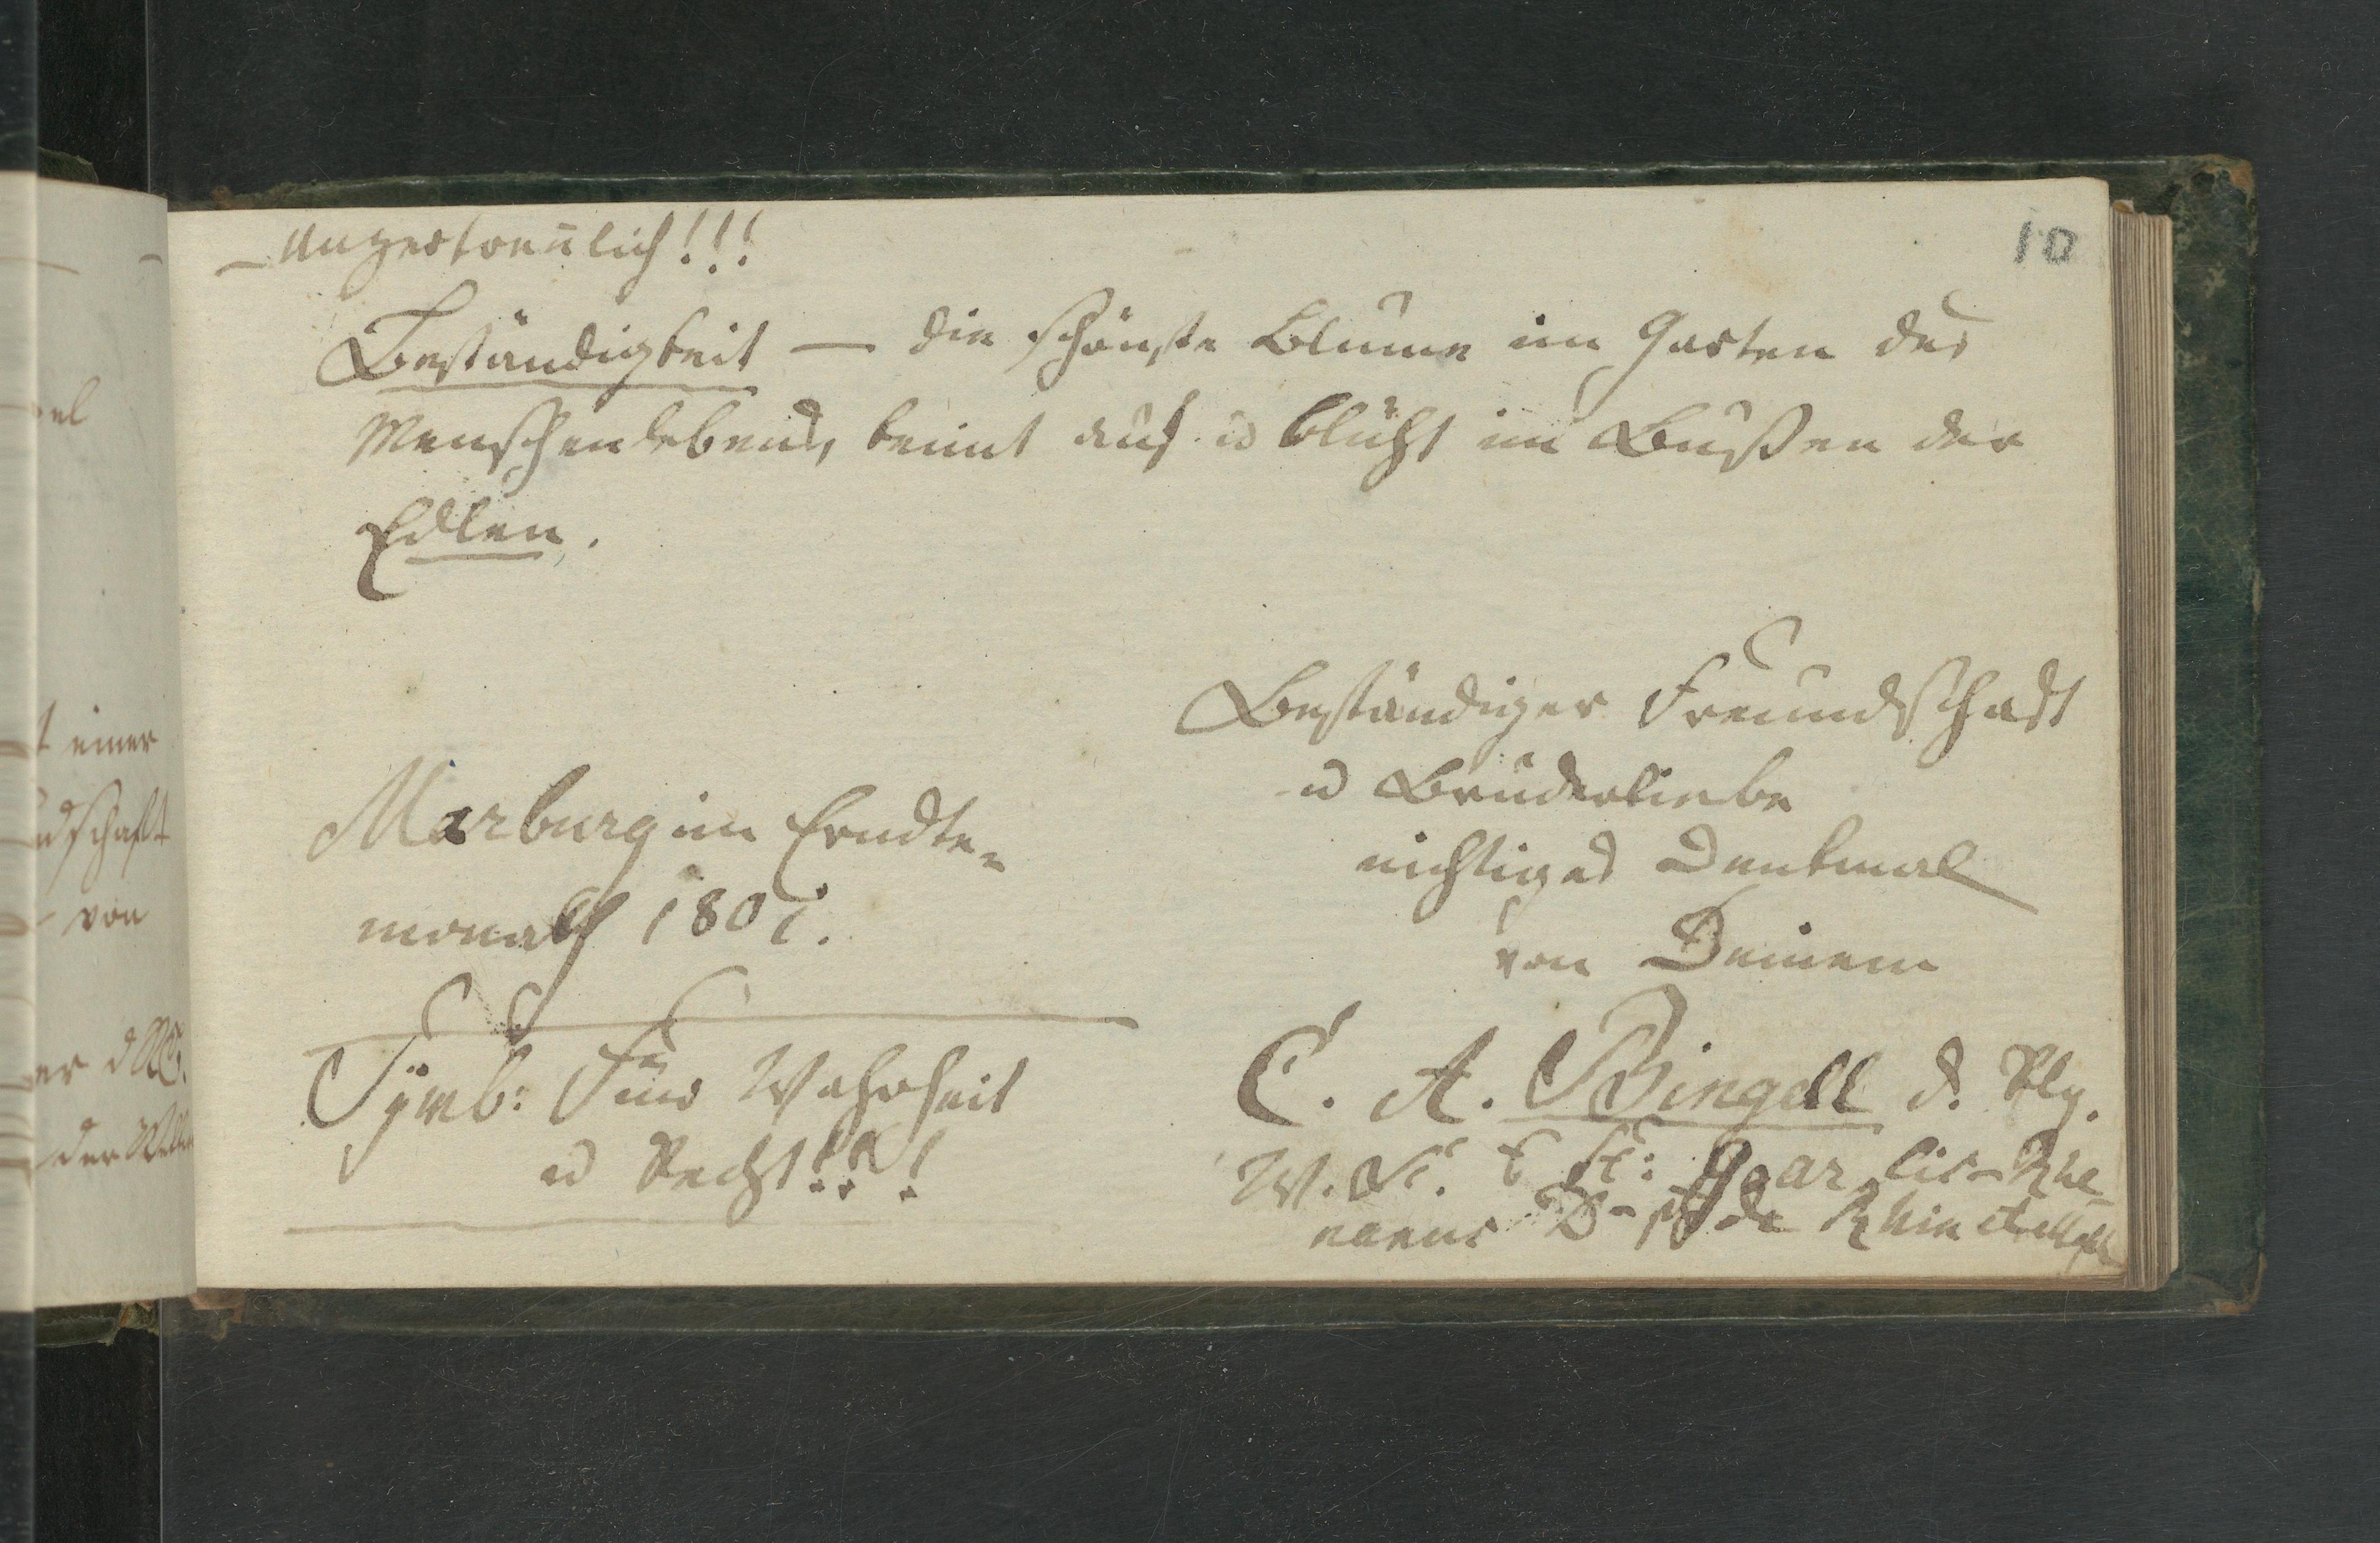 10
– Unzertrennlich!!!
Beständigkeit — die schönste Blume im Garten des
Menschenlebens, keimt auf u blüht im Bußen der
Edlen.
Beständiger Freundschaft
u Bruderliebe
nichtiges Denkmal
von Deinem
Marburg im Erndte-
monath 1801.
Symb: Für Wahrheit
u Recht!!!
C. A. Bingell d. Rg.
W. K. St: Goar cis-Rhe
nanus Rhin
el
t einer
dschaft
von
der